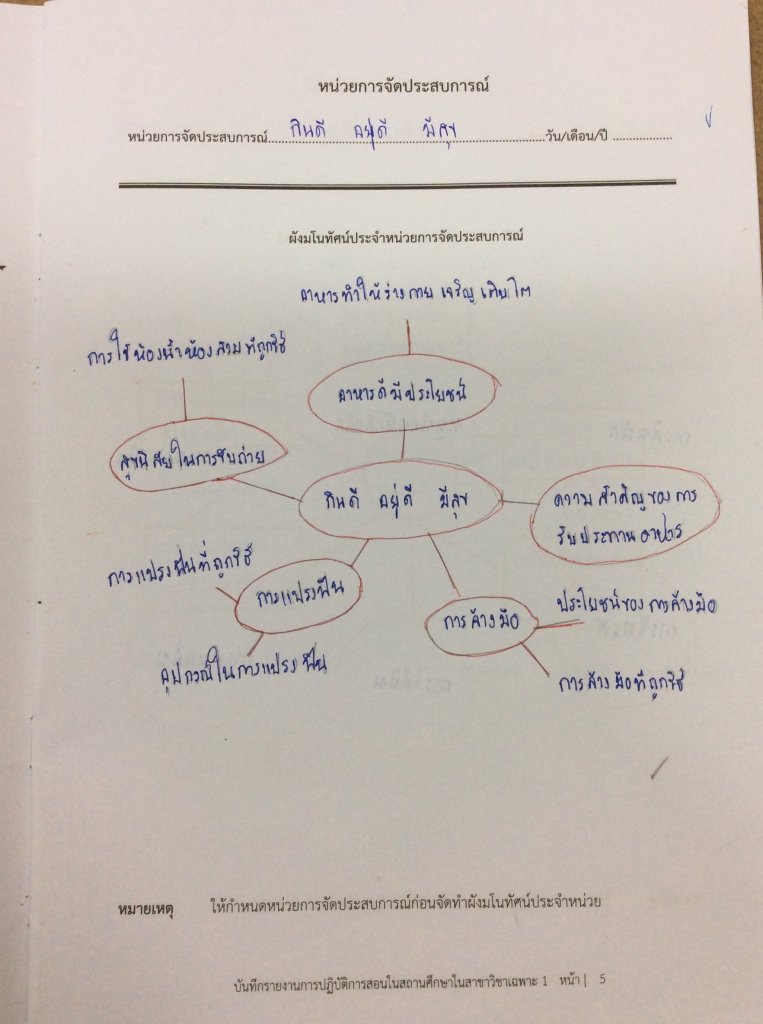 หน่วยการจัดประสบการณ์
หน่วยการจัดประสบการณ์ กินดี อยู่ดี มีสุข วัน/เดือน/ปี
ผังมโนทัศน์ประจำหน่วยการจัดประสบการณ์
อาหารทำให้ร่างกาย เจริญ เติบโต
การใช้ห้องน้ำห้องส้วมที่ถูกวิธี
อาหารดีมีประโยชน์
สุขนิสัยในการขับถ่าย
กินดี อยู่ดี มีสุข
ความสำคัญของการ
รับประทานอาหาร
การแปรงฟันที่ถูกวิธี
การแปรงฟัน
การล้างมือ
ประโยชน์ของการล้างมือ
อุปกรณ์ในการแปรงฟัน
การล้างมือที่ถูกวิธี
หมายเหตุ ให้กำหนดหน่วยการจัดประสบการณ์ก่อนจัดทำผังมโนทัศน์ประจำหน่วย
บันทึกรายงานการปฏิบัติการสอนในสถานศึกษาในสาขาวิชาเฉพาะ 1 หน้า | 5